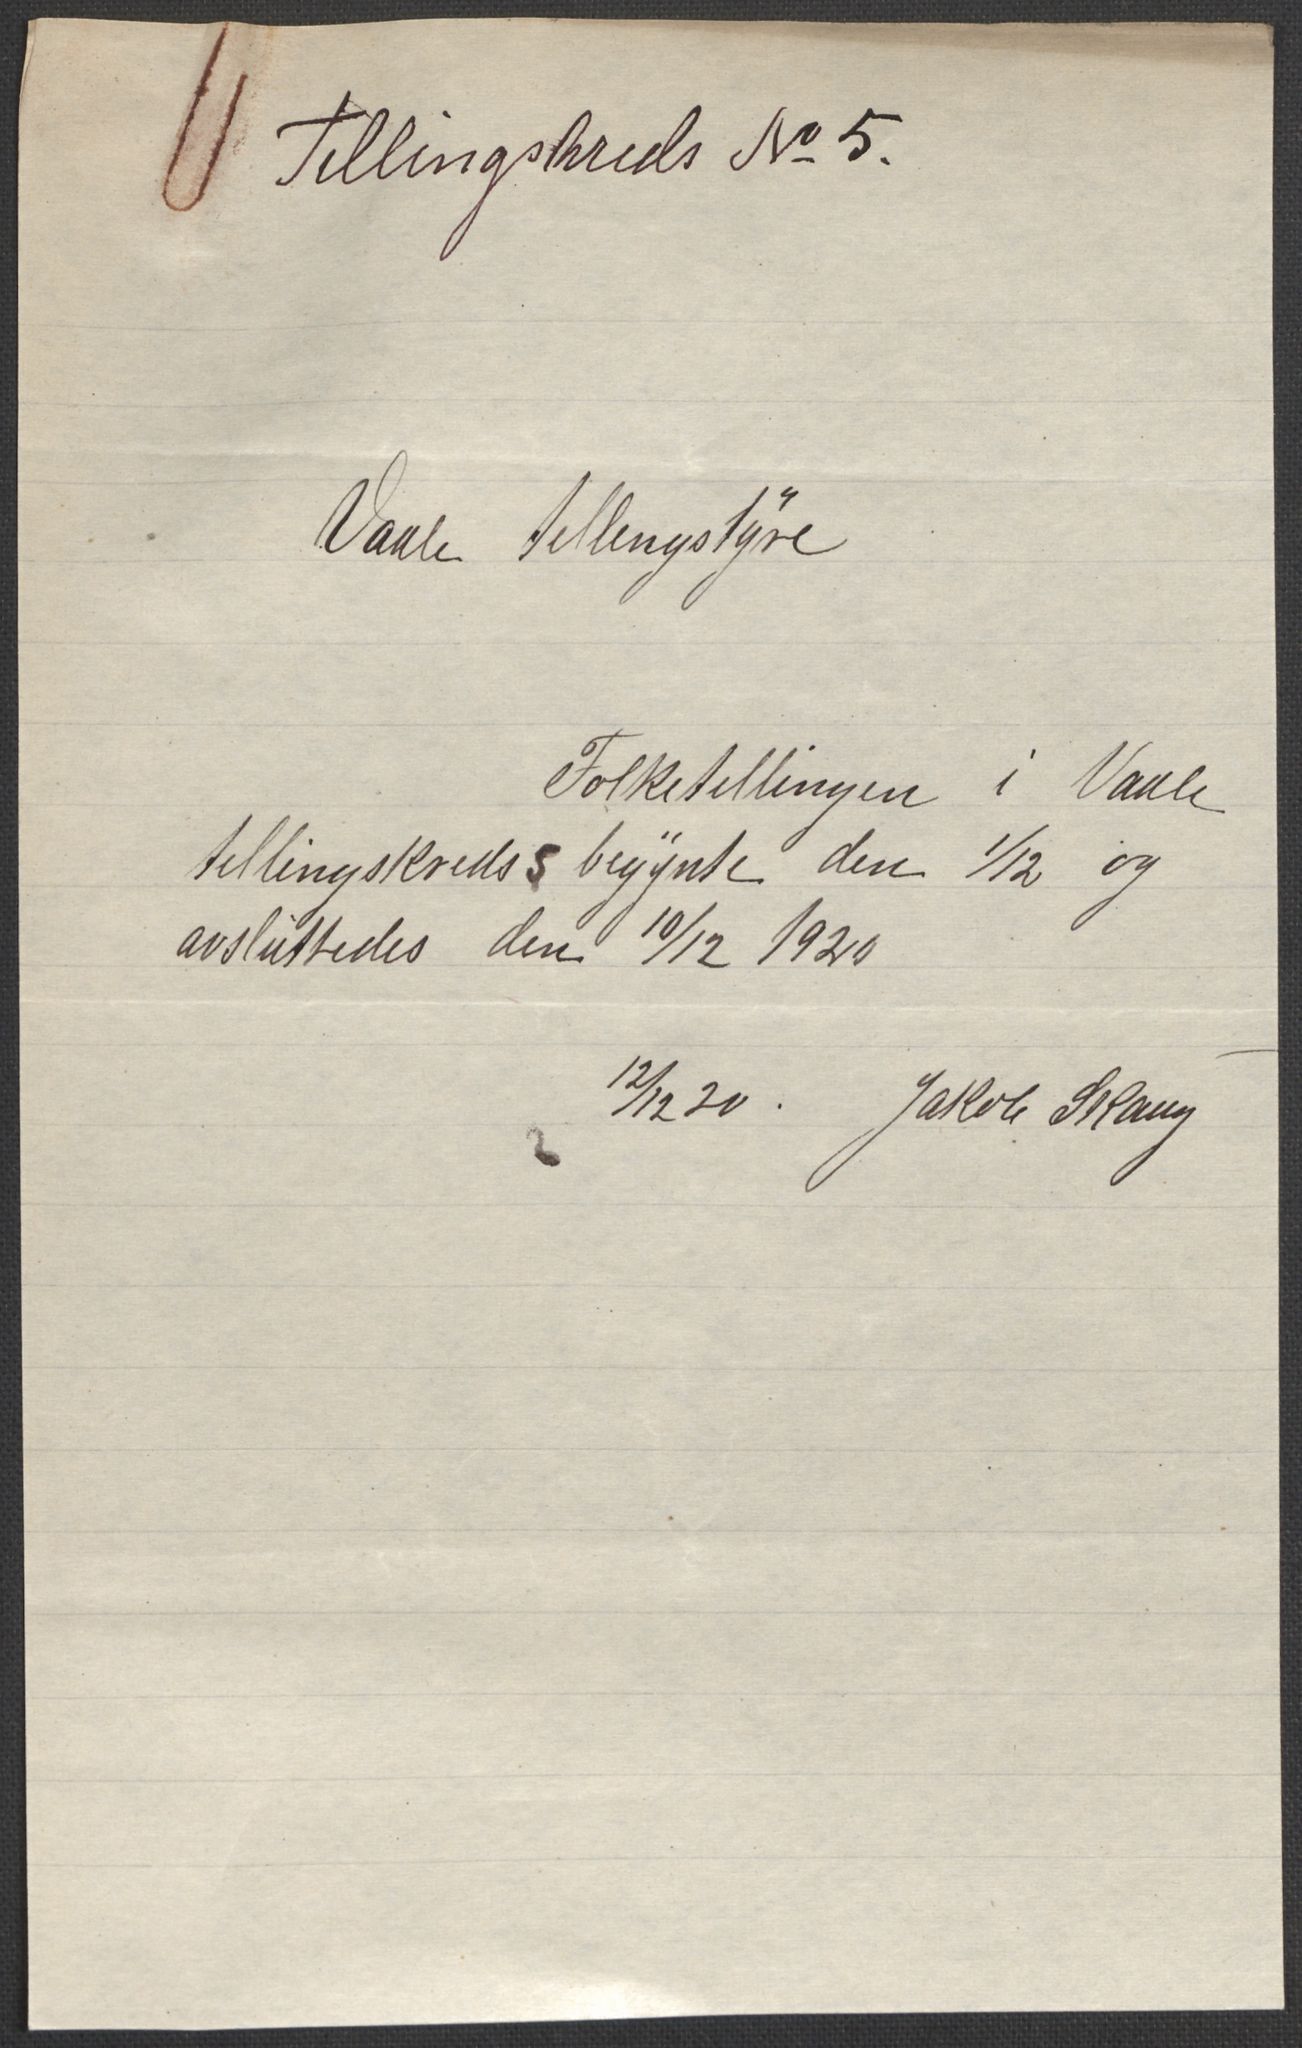 Tellingskreds No 5.
Vaale tellingstÿre
Folketellingen i Vaale
tellingskreds 5 begÿnte den 1/12 og
avsluttedes den 10/12 1920
12/12 20. Jakob Skaug